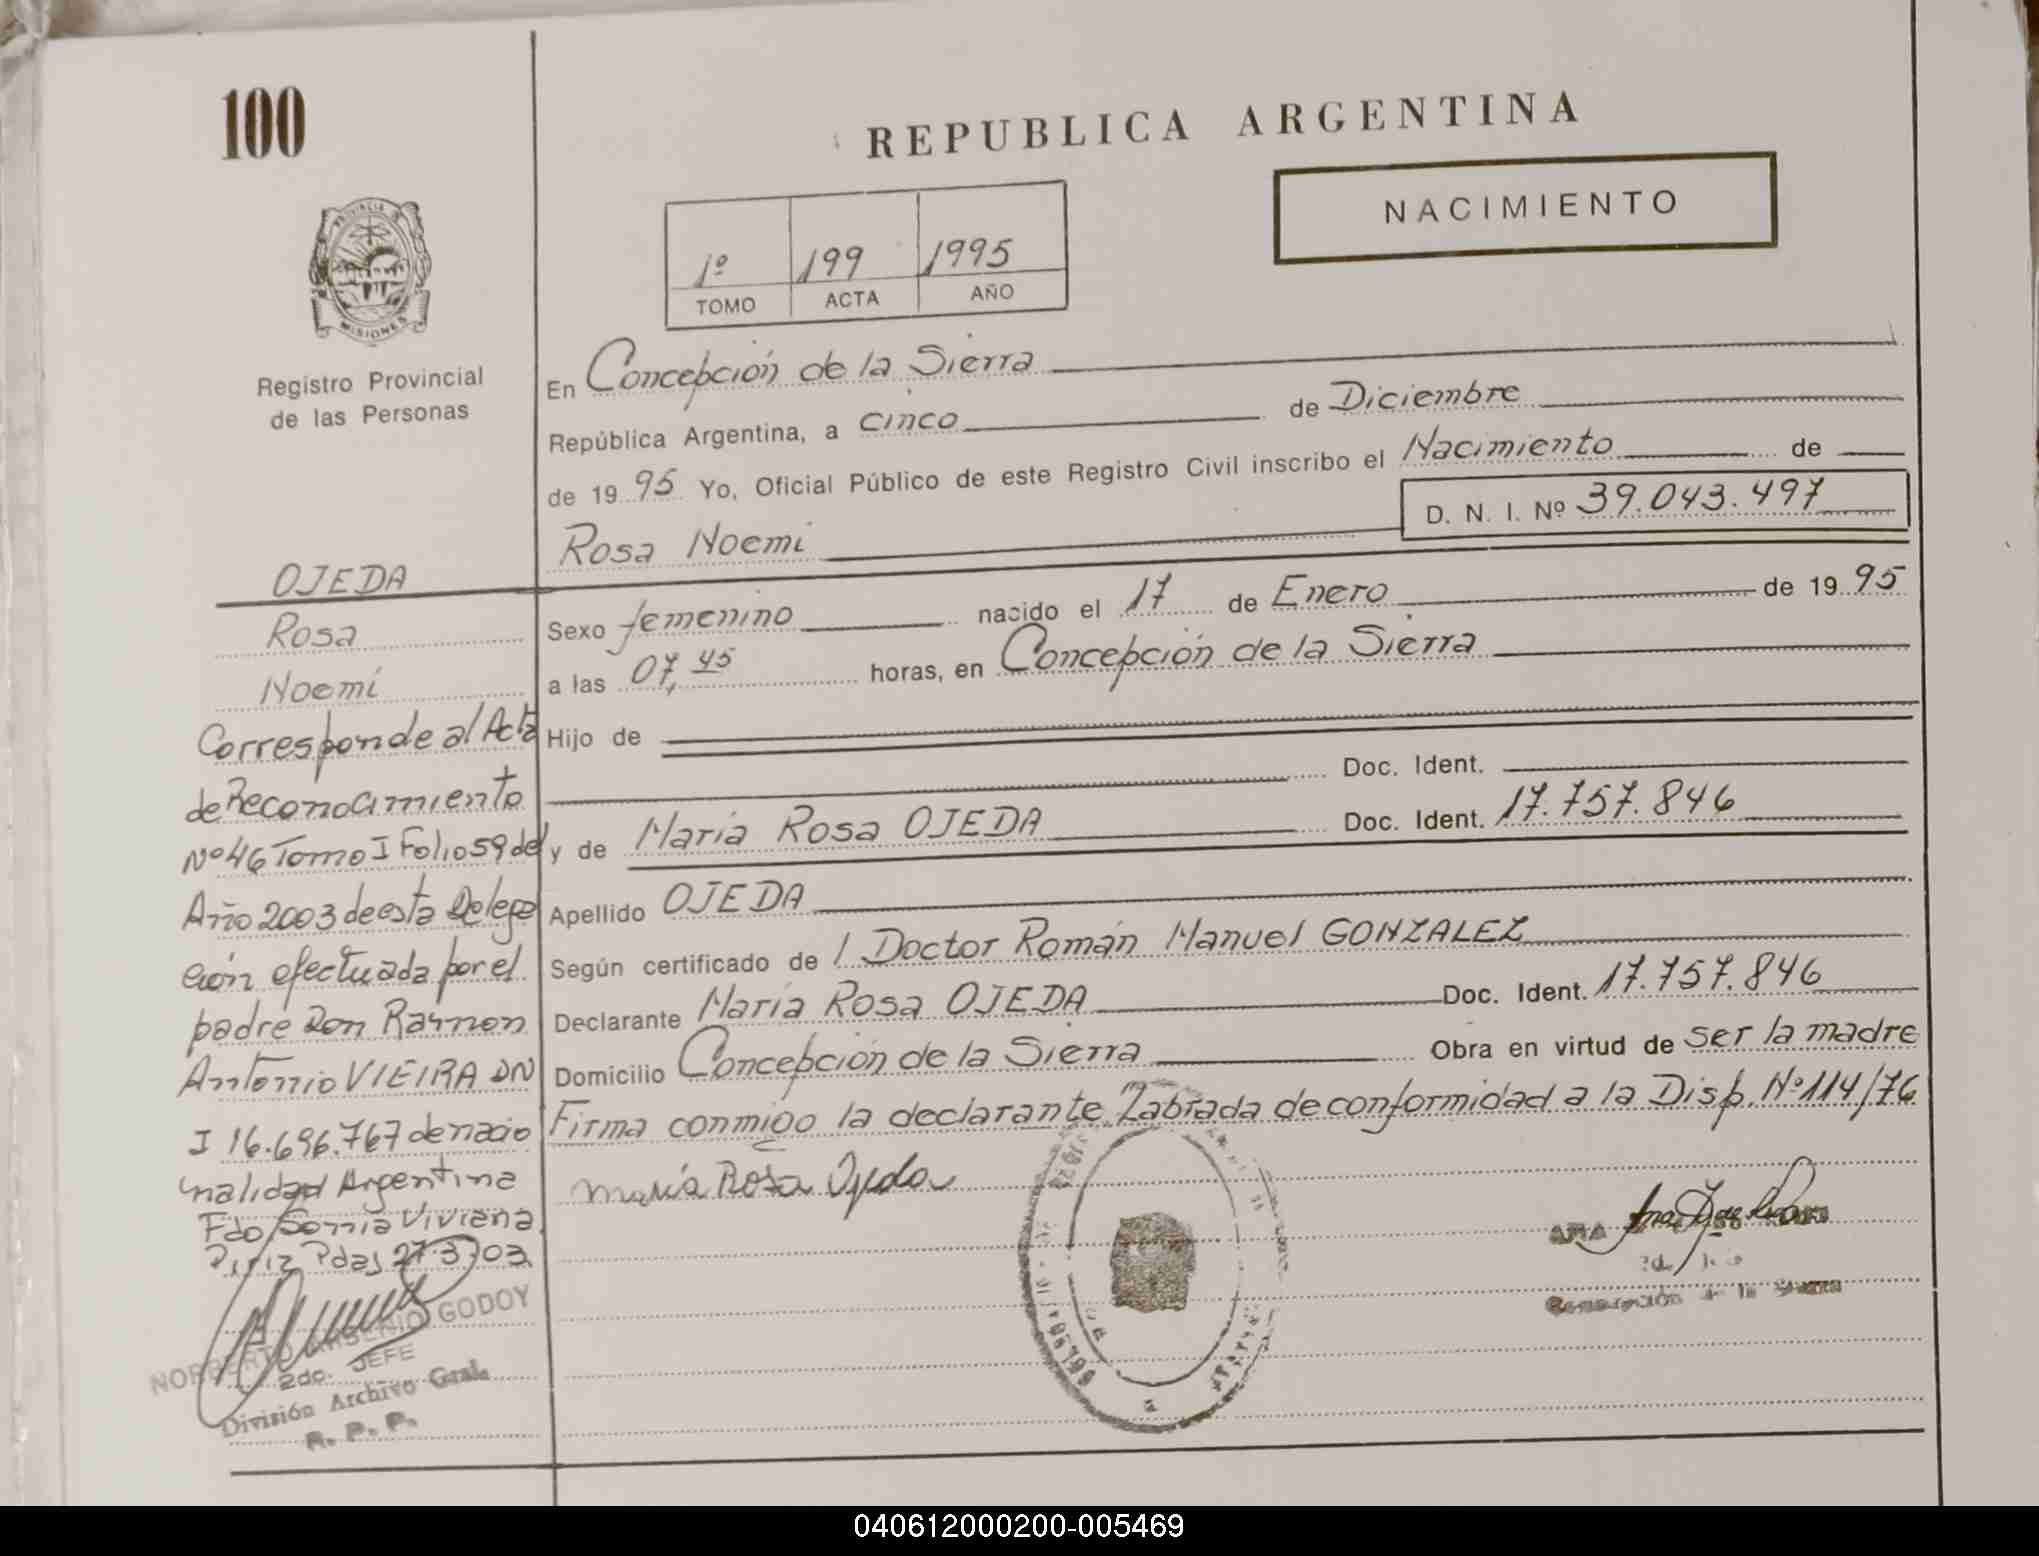 100
REPUBLICA ARGENTINA
NACIMIENTO
PROVINCIA DE
MISIONES
Registro Provincial
de las Personas
1º 199 1995
TOMO ACTA AÑO
En Concepción de la Sierra
República Argentina, a cinco de Diciembre
de 1995 Yo, Oficial Público de este Registro Civil inscribo el Nacimiento de
D. N. I. Nº 39.043.497
Rosa Noemi
Sexo femenino nacido el 17 de Enero de 1995
a las 07,45 horas, en Concepción de la Sierra
Hijo de
Doc. Ident.
y de Maria Rosa OJEDA Doc. Ident. 17.757.846
Apellido OJEDA
Según certificado de l Doctor Román Manuel GONZALEZ
Declarante María Rosa OJEDA Doc. Ident. 17.757.846
Domicilio Concepción de la Sierra Obra en virtud de ser la madre
Firma conmigo la declarante, Labrada de conformidad a la Disp. Nº 114/76
maria Rosa Ojeda
OJEDA
Rosa
Noemí
Corresponde al Acta
de Reconocimiento
Nº 46 Tomo I Folio 59 del
Año 2003 de esta Delega
ción efectuada por el
padre Don Ramon
Antonio VIEIRA DN
I 16.696.767 de nacio
nalidad Argentina
Fdo Sonnia Viviana
Pdas 27.3.03
NORBERTO ARSENIO GODOY
2do. JEFE
División Archivo Gral.
R. P. P.
ANA
Concepción de la Sierra
040612000200-005469